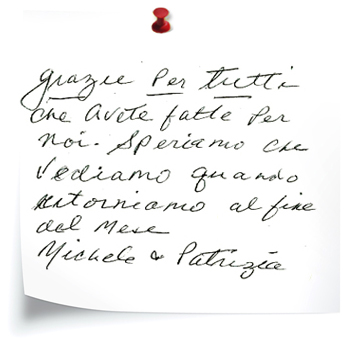 grazie per tutti
che avete fatte per
noi. Speriamo che
vediamo quando
ritorniamo al fine
del mese
Michele & Patrizia